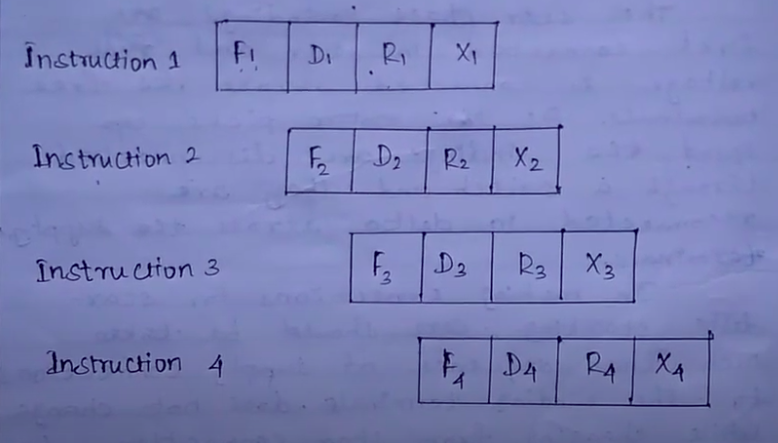 Instruction 1 F1 D1 R1 X1
Instruction 2 F2 D2 R2 X2
Instruction 3 F3 D3 R3 X3
Instruction 4 F4 D4 R4 X4